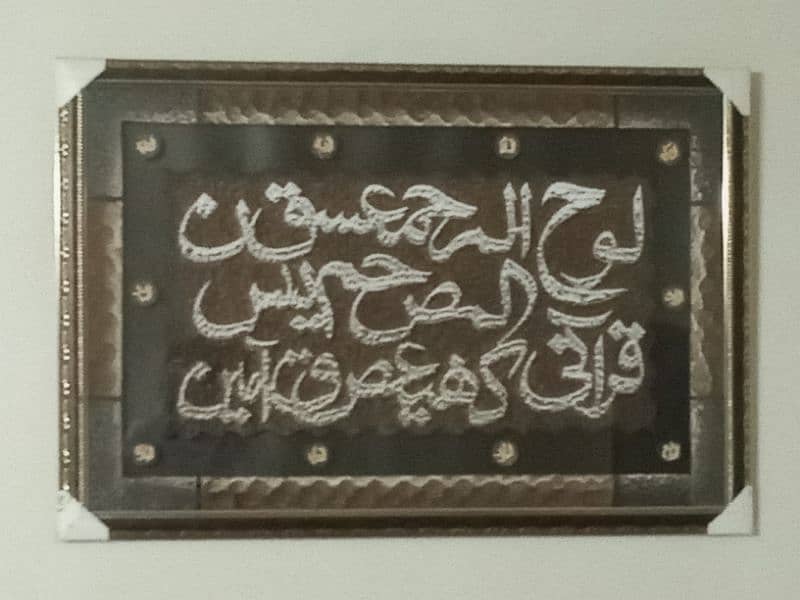 لوح المر حمعسق ن
المص حم یس
قرآنی کھیعص ق آمین